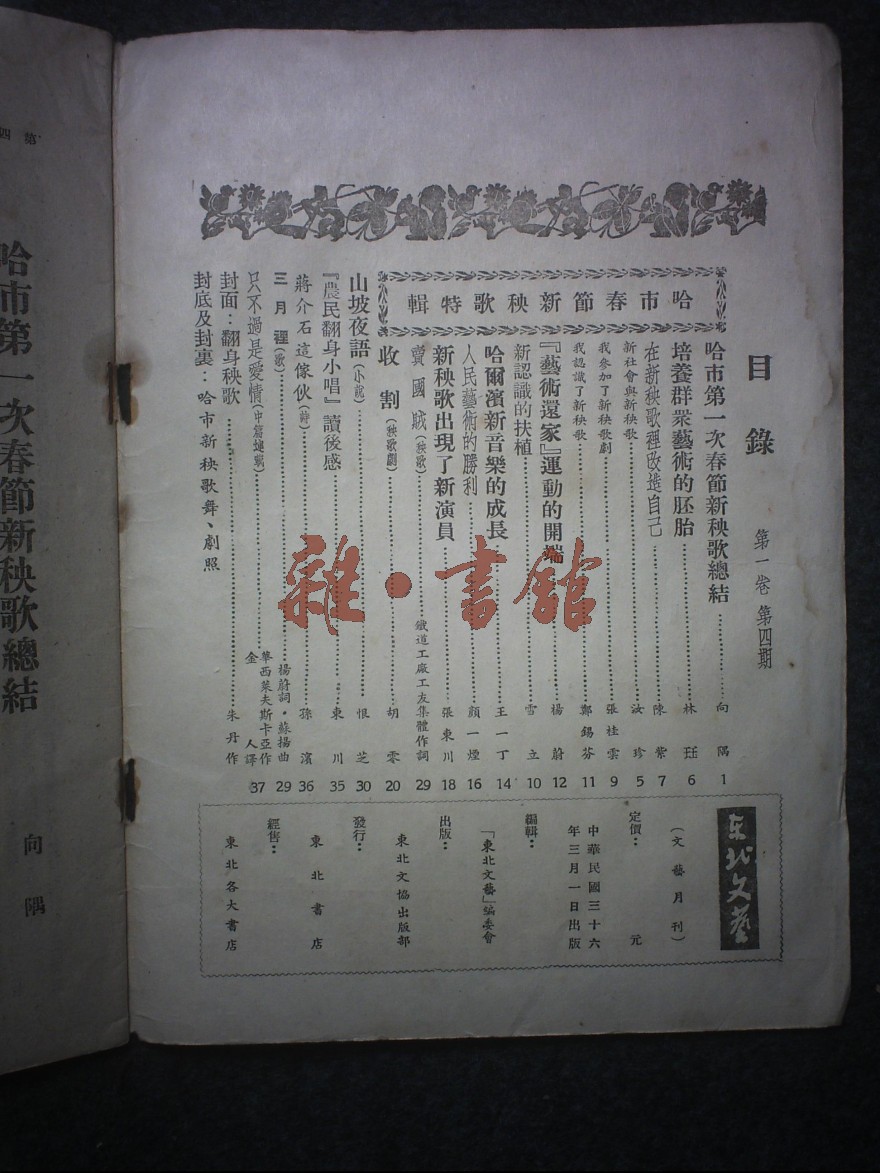 目錄
第一卷 第四期
哈市春節新秧歌特輯
哈市第一次春節新秧歌總結 向隅 1
培養群衆藝術的胚胎 林珏 6
在新秧歌裡改造自己 陳紫 7
新社會與新秧歌 汝珍 5
我參加了新秧歌劇 張桂雲 9
我認識了新秧歌 鄭錫芬 11
『藝術還家』運動的開端 楊蔚 12
新認識的扶植 雪立 10
哈爾濱新音樂的成長 王一丁 14
人民藝術的勝利 顏一煙 16
新秧歌出現了新演員 張東川 18
賣國賊(秧歌) 鐵道工廠工友集體作詞 29
收割(秧歌劇) 胡零 20
山坡夜語(小說) 恨芝 30
『農民翻身小唱』讀後感 東川 35
蔣介石這傢伙(詩) 孫濱 36
三月裡(歌) 楊蔚詞·蘇揚曲 29
只不過是愛情(中篇連載) 華西萊夫斯卡亞作 金人譯 37
封面:翻身秧歌 朱丹作
封底及封裏:哈市新秧歌舞、劇照
東北文藝
(文藝月刊)
定價: 元
中華民國三十六
年三月一日出版
編輯:
「東北文藝」編委會
出版:
東北文協出版部
發行:
東北書店
經售:
東北各大書店
第四
哈市第一次春節新秧歌總結
向隅
雜·書館